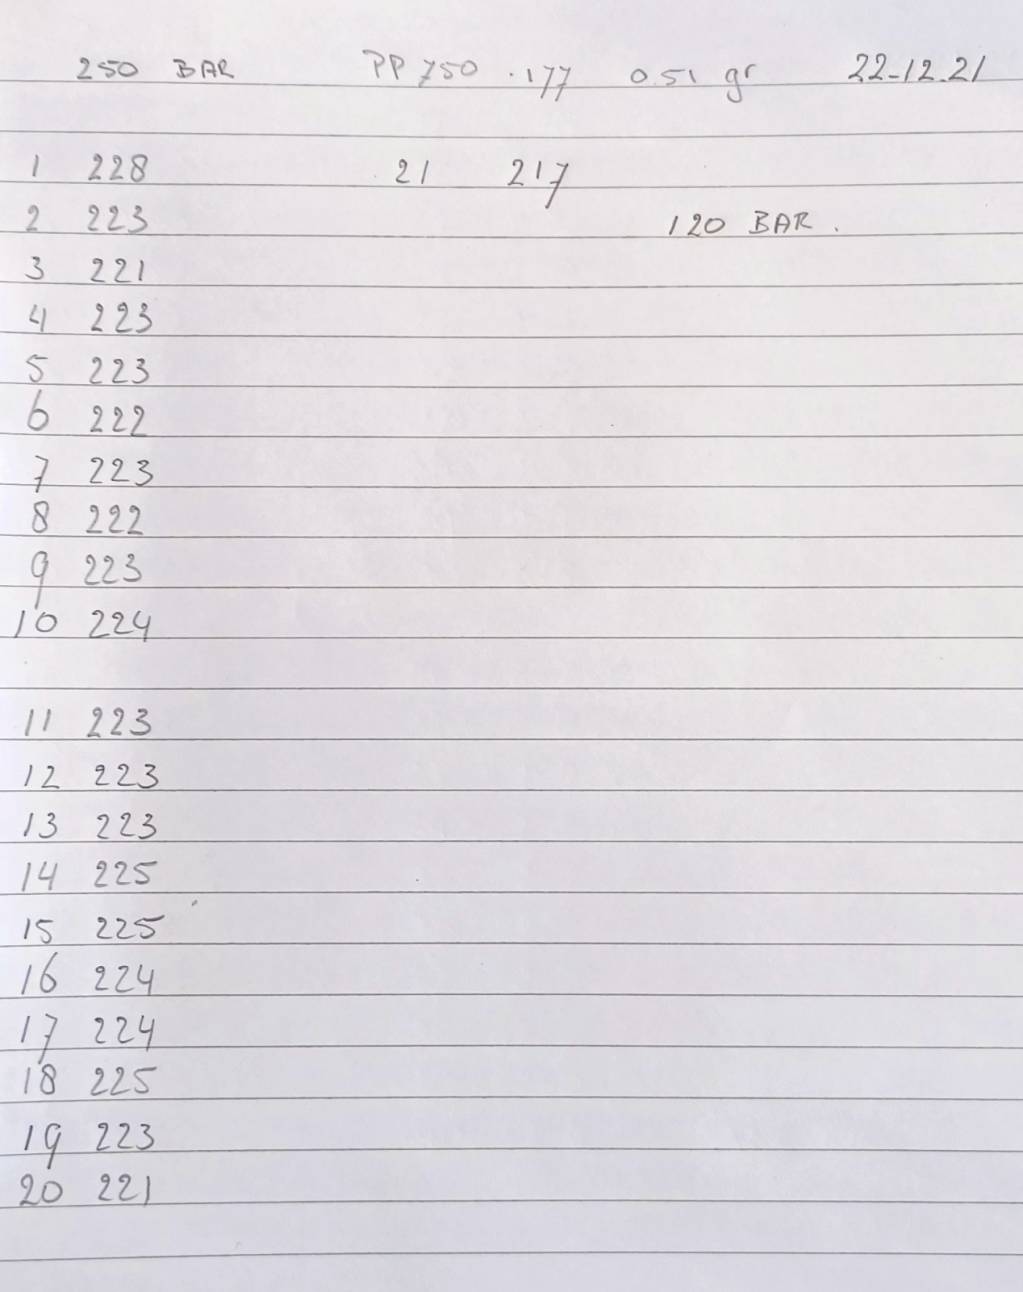 250 BAR PP 750 .177 0.51 gr 22-12-21
1 228 21 217
2 223 120 BAR.
3 221
4 223
5 223
6 222
7 223
8 222
9 223
10 224
11 223
12 223
13 223
14 225
15 225
16 224
17 224
18 225
19 223
20 221